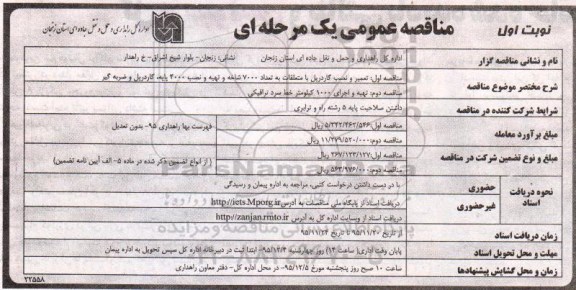 نوبت اول
مناقصه عمومی یک مرحله ای
اداره کل راهداری و حمل و نقل جاده ای استان زنجان
نام و نشانی مناقصه گزار
اداره کل راهداری و حمل و نقل جاده ای استان زنجان نشانی: زنجان- بلوار شیخ اشراق- خ راهدار
شرح مختصر موضوع مناقصه
مناقصه اول: تعمیر و نصب گاردریل با متعلقات به تعداد ۷۰۰۰ شاخه و تهیه و نصب ۴۰۰۰ پایه، گاردریل و ضربه گیر
مناقصه دوم: تهیه و اجرای ۱۰۰۰ کیلومتر خط سرد ترافیکی
شرایط شرکت کننده در مناقصه
داشتن صلاحیت پایه ۵ رشته راه و ترابری
مبلغ برآورد معامله
مناقصه اول: ۵/۳۴۲/۴۶۲/۵۴۶ ریال
مناقصه دوم: ۱۱/۲۷۹/۵۲۰/۰۰۰ ریال
فهرست بها راهداری ۹۵- بدون تعدیل
مبلغ و نوع تضمین شرکت در مناقصه
مناقصه اول: ۲۶۷/۱۲۳/۱۲۷ ریال
مناقصه دوم: ۵۶۳/۹۷۶/۰۰۰ ریال
( از انواع تضمین ذکر شده در ماده ۵- الف آیین نامه تضمین)
نحوه دریافت اسناد
حضوری
با در دست داشتن درخواست کتبی، مراجعه به اداره پیمان و رسیدگی
غیرحضوری
دریافت اسناد از پایگاه ملی مناقصات به آدرس http://iets.Mporg.ir
دریافت اسناد از وبسایت اداره کل به آدرس http://zanjan.rmto.ir
زمان دریافت اسناد
از تاریخ ۹۵/۱۱/۲۰ تا تاریخ ۹۵/۱۱/۲۴
مهلت و محل تحویل اسناد
پایان وقت اداری( ساعت ۱۴) روز چهارشنبه ۹۵/۱۲/۴- ابتدا ثبت در دبیرخانه اداره کل سپس تحویل به اداره پیمان
زمان و محل گشایش پیشنهادها
ساعت ۱۰ صبح روز پنجشنبه مورخ ۹۵/۱۲/۵- در محل اداره کل- دفتر معاون راهداری
۲۲۵۵۸